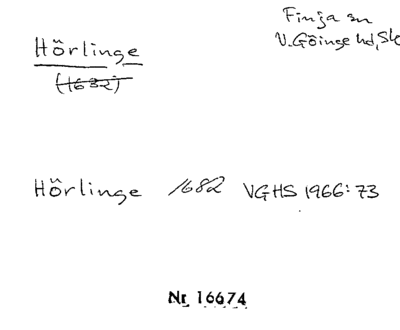 Hörlinge
Finja sn
V. Göinge hd, Sk
(1632)
Hörlinge 1682 VGHS 1966:73
Nr 16674